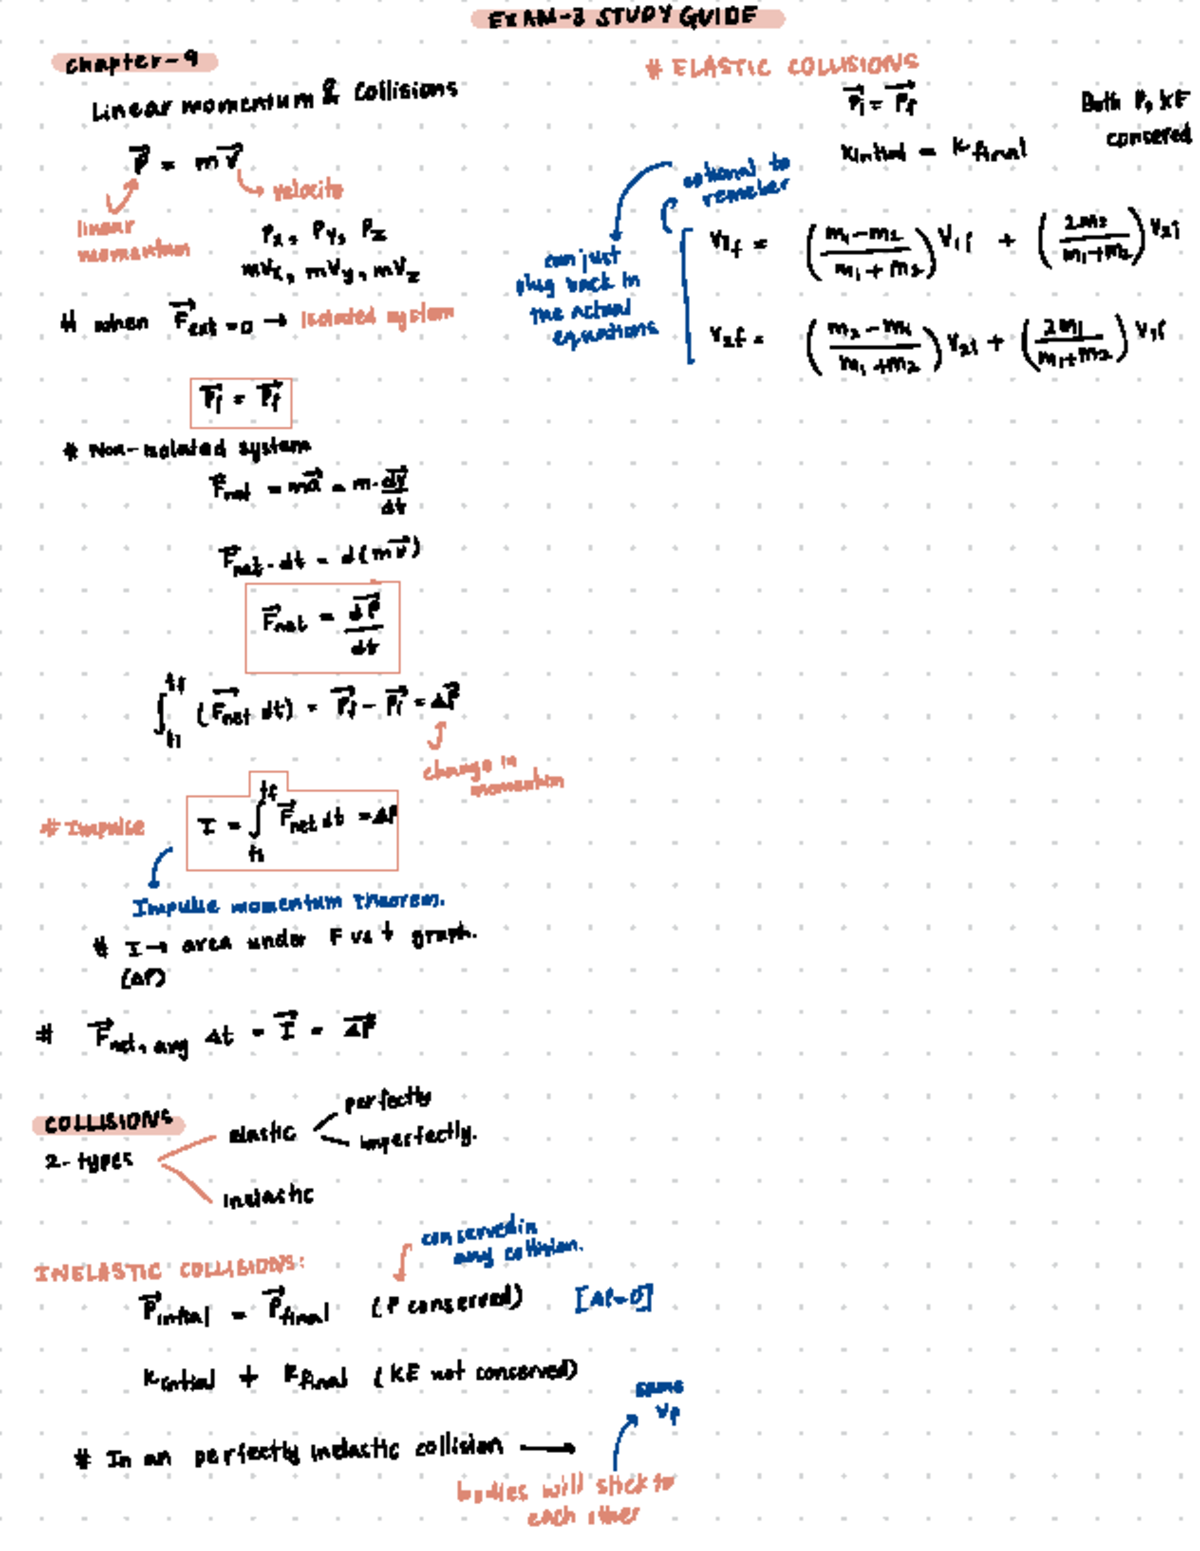 EXAM-3 STUDY GUIDE
chapter-9
Linear momentum & Collisions
P⃗ = mV⃗
velocity
linear
momentum
Px, Py, Pz
mVx, mVy, mVz
# when F⃗ext = 0 → Isolated system
P⃗i = P⃗f
# Non-isolated system
F⃗net = ma⃗ = m·dv⃗/dt
F⃗net·dt = d(mv⃗)
F⃗net = dP⃗/dt
∫ti^tf (F⃗net dt) = P⃗f - P⃗i = ΔP⃗
change in
momentum
# Impulse
I = ∫ti^tf F⃗net dt = ΔP
Impulse momentum theorem.
# I → area under F vs t graph.
(ΔP)
# F⃗net, avg Δt = I⃗ = ΔP⃗
COLLISIONS
2-types
elastic
perfectly
imperfectly.
inelastic
INELASTIC COLLISIONS:
conserved in
any collision.
P⃗initial = P⃗final (P conserved) [ΔP=0]
Kintial ≠ Kfinal (KE not conserved)
# In an perfectly inelastic collision →
same
VF
bodies will stick to
each other
# ELASTIC COLLISIONS
P⃗i = P⃗f
Both P, KE
conserved
Kintial = Kfinal
optional to
remeber
can just
plug back in
the actual
equations
V1f = (m1-m2/m1+m2) V1i + (2m2/m1+m2) V2i
V2f = (m2-m1/m1+m2) V2i + (2m1/m1+m2) V1i